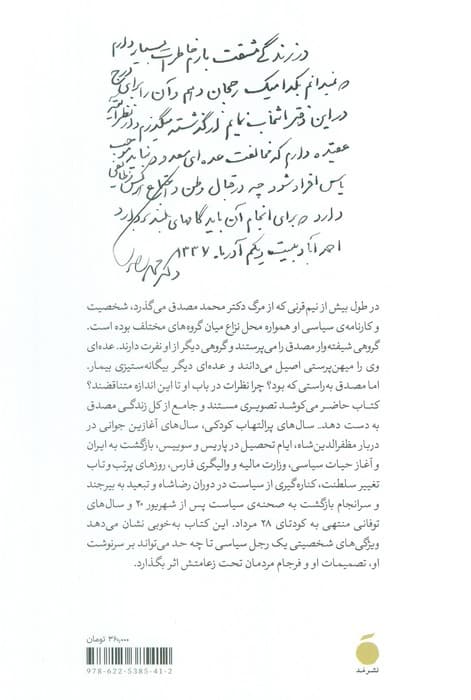 در زندگی مشقت بارم خاطرات بسیار دارم
و نمیدانم بکدامیک رجحان دهم و آن را برای درج
در این دفتر انتخاب نمایم از گذشته میگذرم و از نظر آتیه
عقیده دارم که مخالفت عده‌ای معدود نباید موجب
یأس افراد شود چه در قبال وطن و اجتماع هر کس وظایفی
دارد که برای انجام آن باید گامهای بلند بردارد
احمد آباد بیست و یکم آذر ماه ۱۳۳۷
دکتر محمد مصدق
در طول بیش از نیم‌قرنی که از مرگ دکتر محمد مصدق می‌گذرد، شخصیت
و کارنامه‌ی سیاسی او همواره محل نزاع میان گروه‌های مختلف بوده است.
گروهی شیفته‌وار مصدق را می‌پرستند و گروهی دیگر از او نفرت دارند. عده‌ای
وی را میهن‌پرستی اصیل می‌دانند و عده‌ای دیگر بیگانه‌ستیزی بیمار.
اما مصدق به‌راستی که بود؟ چرا نظرات در باب او تا این اندازه متناقضند؟
کتاب حاضر می‌کوشد تصویری مستند و جامع از کل زندگی مصدق
به دست دهد. سال‌های پرالتهاب کودکی، سال‌های آغازین جوانی در
دربار مظفرالدین‌شاه، ایام تحصیل در پاریس و سوییس، بازگشت به ایران
و آغاز حیات سیاسی، وزارت مالیه و والیگری فارس، روزهای پرتب‌وتاب
تغییر سلطنت، کناره‌گیری از سیاست در دوران رضاشاه و تبعید به بیرجند
و سرانجام بازگشت به صحنه‌ی سیاست پس از شهریور ۲۰ و سال‌های
توفانی منتهی به کودتای ۲۸ مرداد. این کتاب به‌خوبی نشان می‌دهد
ویژگی‌های شخصیتی یک رجل سیاسی تا چه حد می‌تواند بر سرنوشت
او، تصمیمات او و فرجام مردمان تحت زعامتش اثر بگذارد.
۳۶۰,۰۰۰ تومان
978-622-5385-41-2
نشر مَد